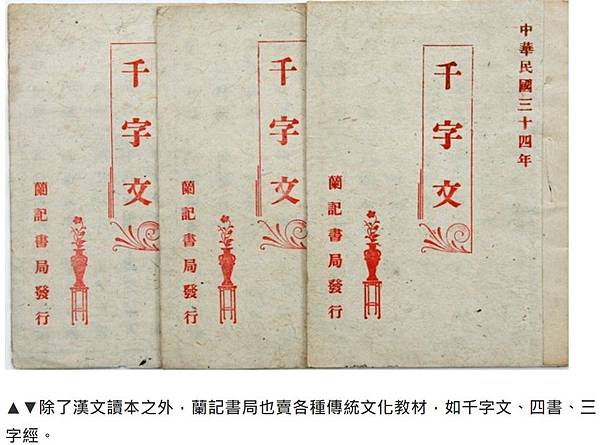 千字文
蘭記書局發行
千字文
蘭記書局發行
中華民國三十四年
千字文
蘭記書局發行
▲▼除了漢文讀本之外，蘭記書局也賣各種傳統文化教材，如千字文、四書、三
字經。